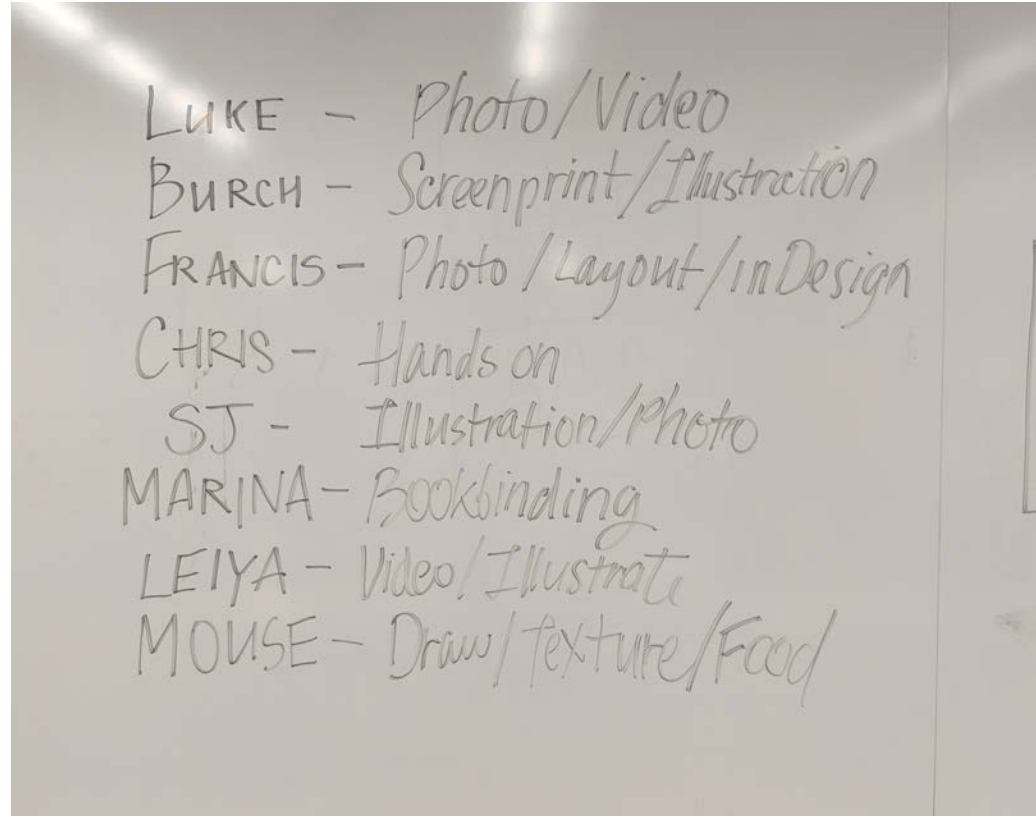 LUKE - Photo/Video
BURCH - Screenprint/Illustration
FRANCIS - Photo/Layout/inDesign
CHRIS - Hands on
SJ - Illustration/Photo
MARINA - Bookbinding
LEIYA - Video/Illustrate
MOUSE - Draw/texture/Food